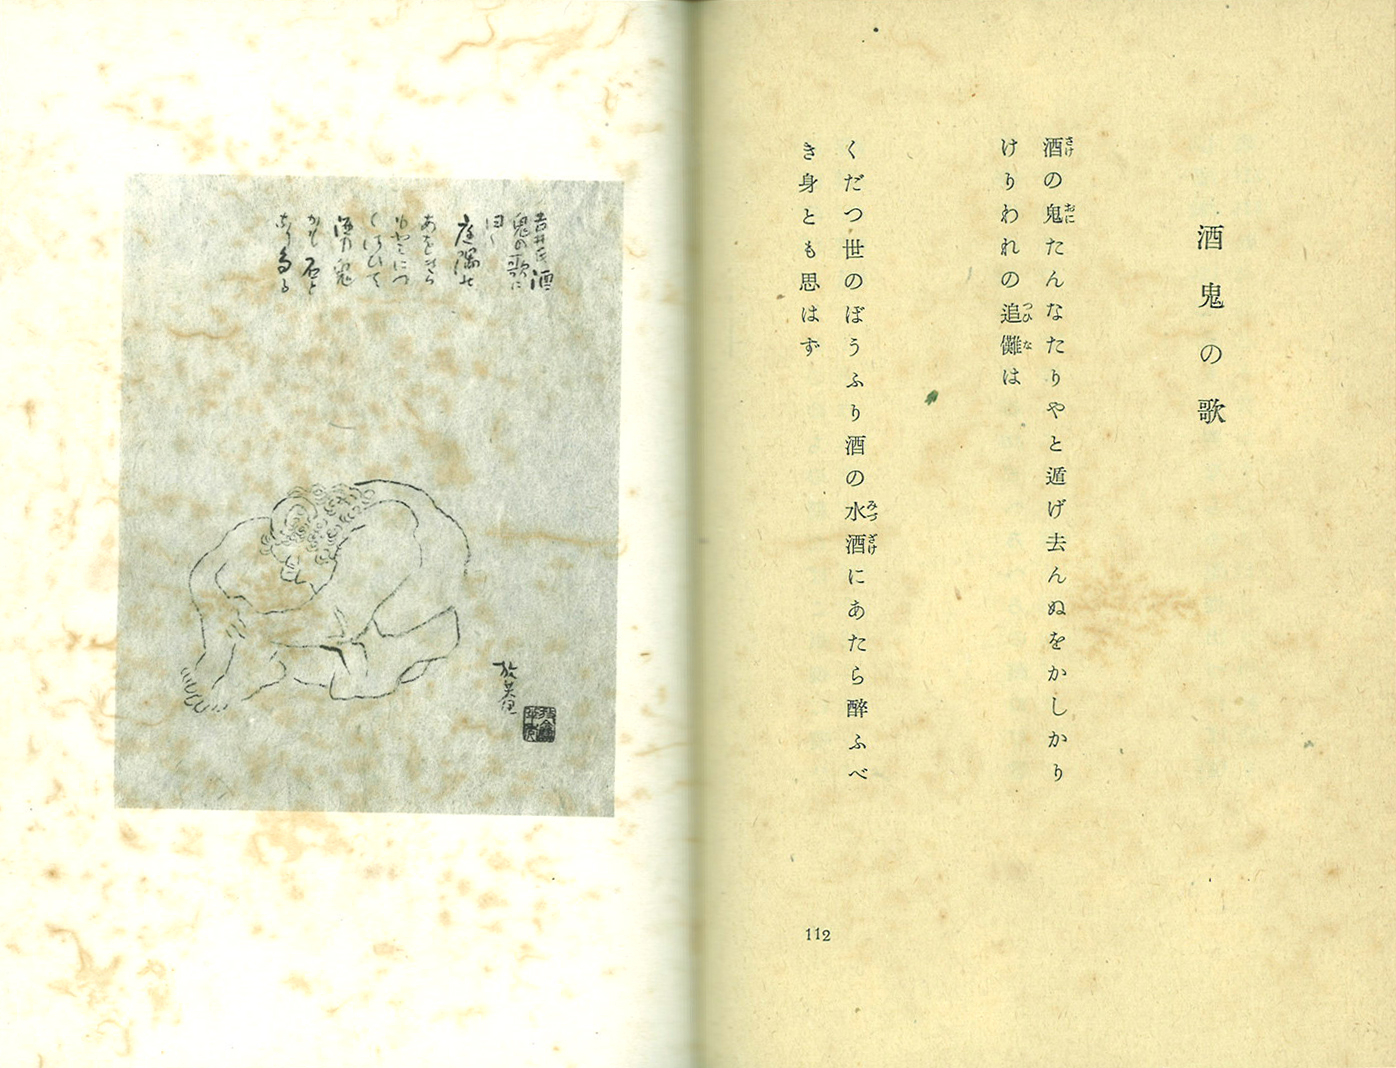 酒鬼の歌
酒の鬼たんなたりやと遁げ去んぬをかしかり
けりわれの追儺は
くだつ世のぼうふり酒の水酒にあたら醉ふべ
き身とも思はず
112
吉井氏酒
鬼の歌に
曰く
庭隅に
酒の鬼
かも石と